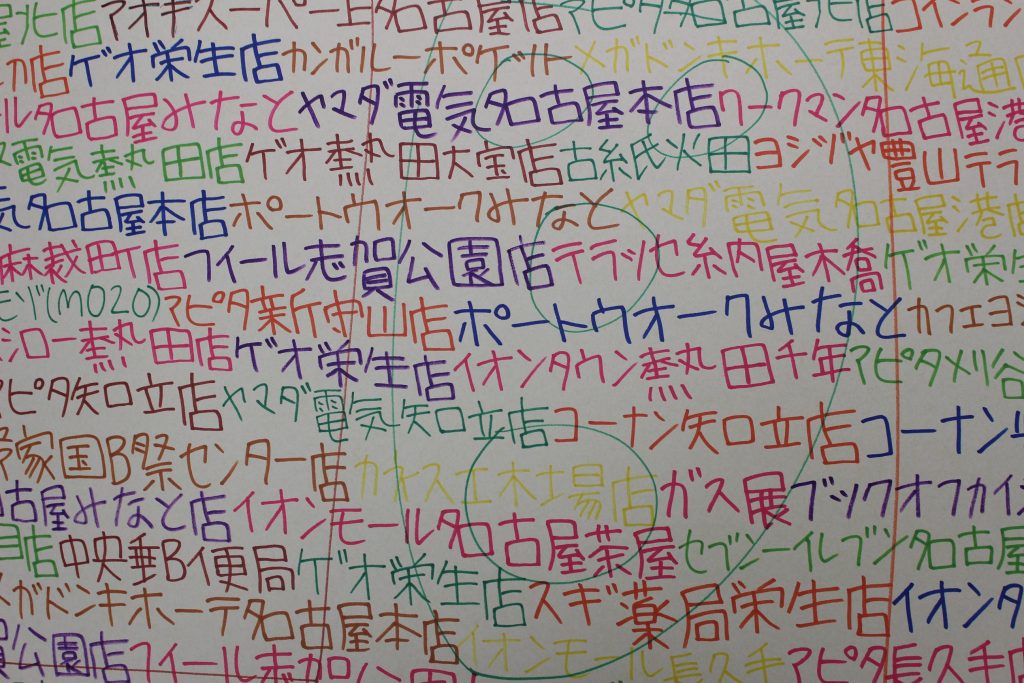 屋北店アオキスーパー上名古屋店アピタ名古屋北店コインラン
カ店ゲオ栄生店カンガルーポケットメガドンキホーテ東海通店
ール名古屋みなとヤマダ電気名古屋本店ワークマン名古屋港
電気熱田店ゲオ熱田大宝店古紙氏火田ヨシヅヤ豊山テラ
気名古屋本店ポートウオークみなとヤマダ電気名古屋港店
麻裁町店フィール志賀公園店テラッセ糸内屋木橋ゲオ栄生
モゾ(MO20)アピタ新守山店ポートウオークみなとカフェヨシ
シロー熱田店ゲオ栄生店イオンタウン熱田千年アピタメリ谷
アピタ矢口立店ヤマダ電気矢口立店コーナン矢口立店コーナン
家国B祭センター店カネスエ木土場店ガス展ブックオフカイン
名古屋みなと店イオンモール名古屋茶屋セブンーイレブン名古屋
店中央郵B便局ゲオ栄生店スギ薬局栄生店イオンタ
メガドンキホーテ名古屋本店
賀公園店フィール志賀公園イオンモール長久手アピタ長久手店